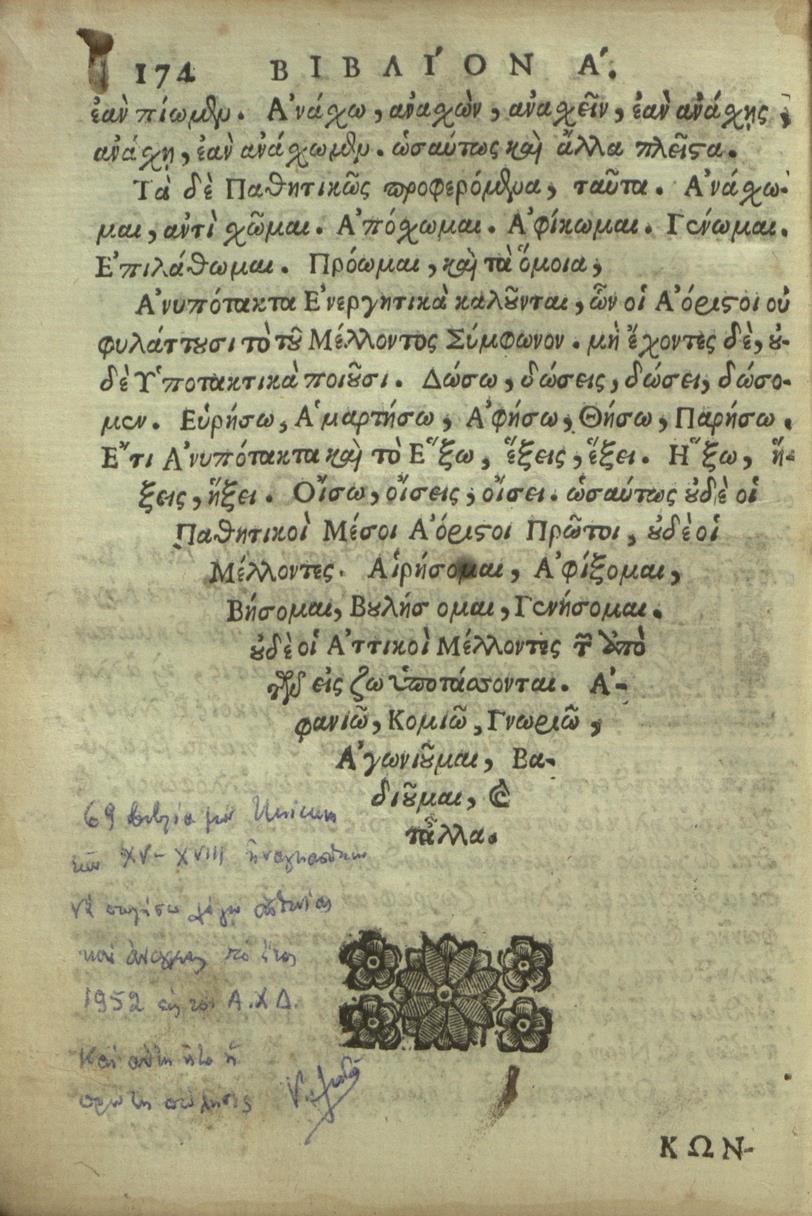 174 ΒΙΒΛΙ´ΟΝ Α´.
ἐὰν πίωμεν. Α᾿νάχω, αναχὼν, αναχεῖν, ἐὰν ανάχῃς,
ανάχῃ, ἐὰν ανάχωμεν. ὡσαύτως καὶ ἄλλα πλεῖστα.
Τὰ δὲ Παθητικῶς προφερόμενα, ταῦτα. Α᾿νάχω-
μαι, αντὶ χῶμαι. Α᾿πόχωμαι. Α᾿φίκωμαι. Γένωμαι.
Ε᾿πιλάθωμαι. Πρόωμαι, καὶ τὰ ὅμοια,
Α᾿νυπότακτα Ε᾿νεργητικὰ καλοῦνται, ὧν οἱ Α᾿όριστοι οὐ
φυλάττουσι τὸ τοῦ Μέλλοντος Σύμφωνον. μὴ ἔχοντες δὲ, ου-
δὲ Υ῾ποτακτικὰ ποιοῦσι. Δώσω, δώσεις, δώσει, δώσο-
μεν. Εὑρήσω, Α῾μαρτήσω, Α᾿φήσω, Θήσω, Παρήσω.
Ε῎τι Α᾿νυπότακτα καὶ τὸ Ε῞ξω, ἕξεις, ἕξει. Η῞ξω, ἥ-
ξεις, ἥξει. Οἴσω, οἴσεις, οἴσει. ὡσαύτως οὐδὲ οἱ
Παθητικοὶ Μέσοι Α᾿όριστοι Πρῶτοι, οὐδὲ οἱ
Μέλλοντες. Αἱρήσομαι, Α᾿φίξομαι,
Βήσομαι, Βουλήσ ομαι, Γενήσομαι.
οὐδὲ οἱ Α᾿ττικοὶ Μέλλοντες τῶν ἀπὸ
τῶν εἰς ζω ὑποτάσσονται. Α᾿-
φανιῶ, Κομιῶ, Γνωριῶ,
Α᾿γωνιοῦμαι, Βα-
διοῦμαι, καὶ
τἆλλα.
69 βιβλία μου
τῶν XV-XVIII ἠναγκάσθην
νὰ πωλήσω λόγῳ ἀσθενείας
καὶ ἀνάγκης τὸ ἔτος
1952 εἰς τον Α.Χ.Δ.
Καὶ αὕτη ἦτο ἡ
πρώτη πώλησις
ΚΩΝ-